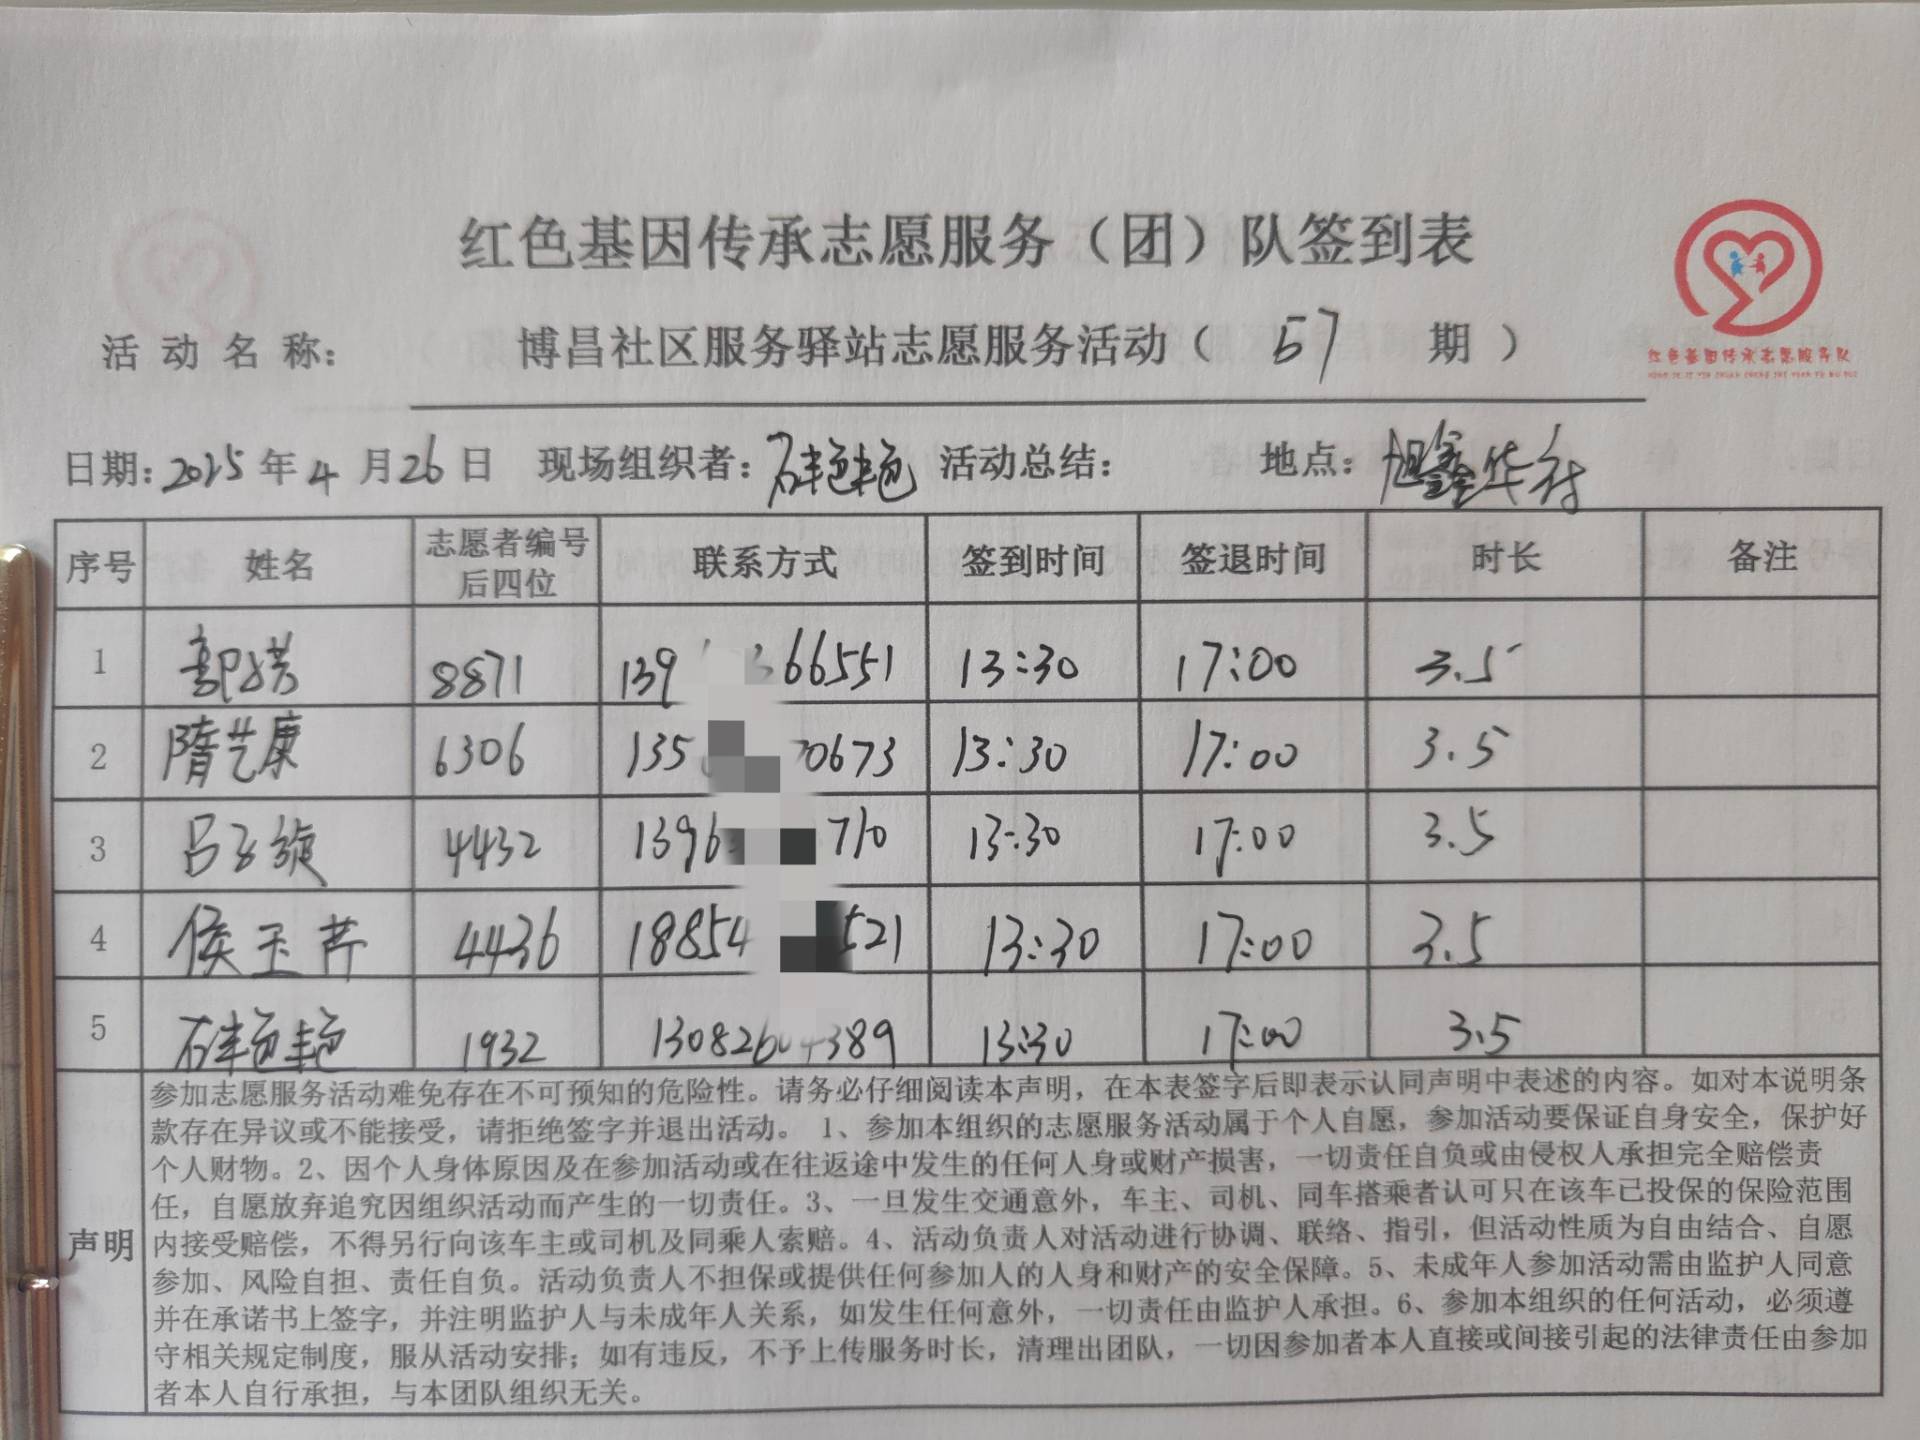 红色基因传承志愿服务（团）队签到表
活动名称： 博昌社区服务驿站志愿服务活动（ 57 期）
红色基因传承志愿服务队
日期：2025年4月26日 现场组织者：石艳艳 活动总结： 地点：旭鑫华府
序号 姓名 志愿者编号后四位 联系方式 签到时间 签退时间 时长 备注
1 8871 139 66551 13:30 17:00 3.5
2 隋艺康 6306 135 0673 13:30 17:00 3.5
3 吕玉旋 4432 1396 710 13:30 17:00 3.5
4 侯玉芹 4436 18854 521 13:30 17:00 3.5
5 石艳艳 1932 130826 4389 13:30 17:00 3.5
声明
参加志愿服务活动难免存在不可预知的危险性。请务必仔细阅读本声明，在本表签字后即表示认同声明中表述的内容。如对本说明条
款存在异议或不能接受，请拒绝签字并退出活动。 1、参加本组织的志愿服务活动属于个人自愿，参加活动要保证自身安全，保护好
个人财物。2、因个人身体原因及在参加活动或在往返途中发生的任何人身或财产损害，一切责任自负或由侵权人承担完全赔偿责
任，自愿放弃追究因组织活动而产生的一切责任。3、一旦发生交通意外，车主、司机、同车搭乘者认可只在该车已投保的保险范围
内接受赔偿，不得另行向该车主或司机及同乘人索赔。4、活动负责人对活动进行协调、联络、指引，但活动性质为自由结合、自愿
参加、风险自担、责任自负。活动负责人不担保或提供任何参加人的人身和财产的安全保障。5、未成年人参加活动需由监护人同意
并在承诺书上签字，并注明监护人与未成年人关系，如发生任何意外，一切责任由监护人承担。6、参加本组织的任何活动，必须遵
守相关规定制度，服从活动安排；如有违反，不予上传服务时长，清理出团队，一切因参加者本人直接或间接引起的法律责任由参加
者本人自行承担，与本团队组织无关。